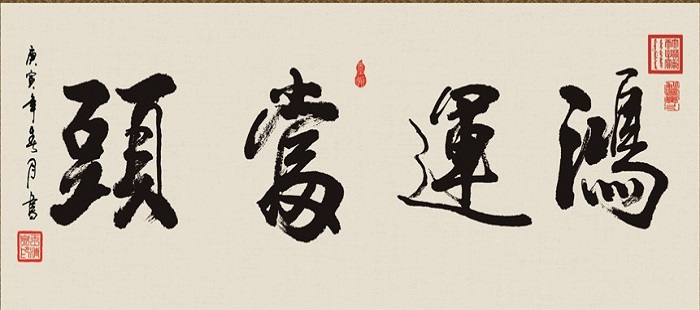 鴻運當頭
庚寅年春月書